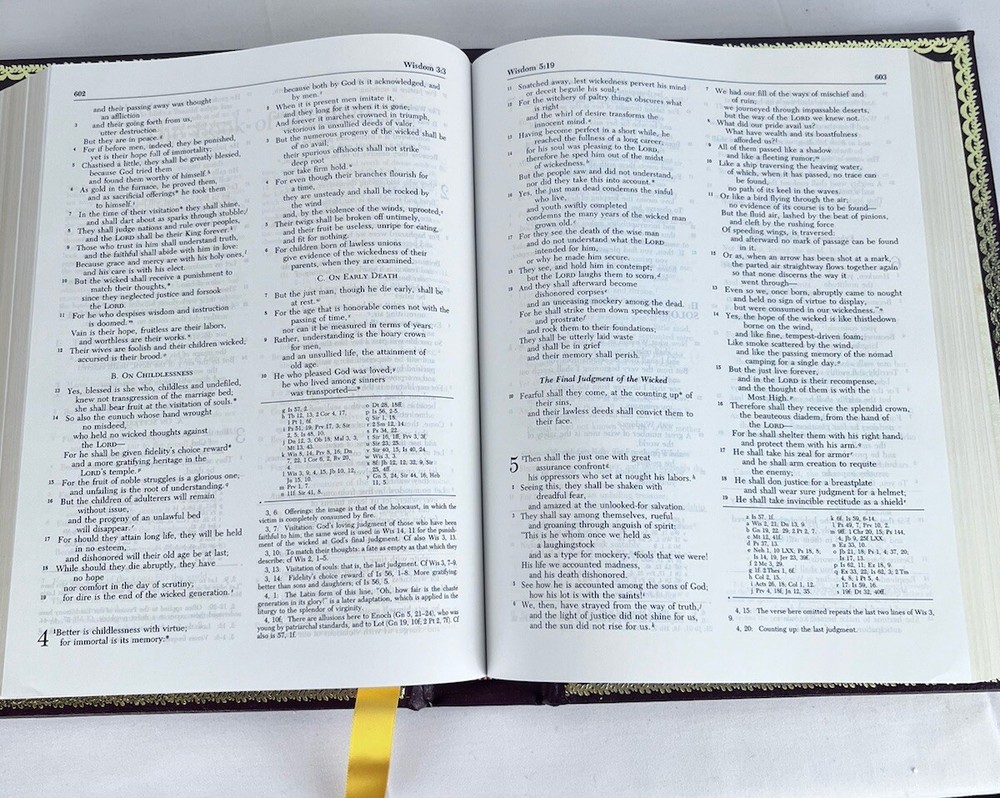 602
Wisdom 3:3
and their passing away was thought
an affliction
3 and their going forth from us,
utter destruction.
But they are in peace.
4 For if before men, indeed, they be punished,
yet is their hope full of immortality;
5 Chastised a little, they shall be greatly blessed,
because God tried them
and found them worthy of himself.
6 As gold in the furnace, he proved them,
and as sacrificial offerings* he took them
to himself.
7 In the time of their visitation* they shall shine,
and shall dart about as sparks through stubble;
8 They shall judge nations and rule over peoples,
and the LORD shall be their King forever.
9 Those who trust in him shall understand truth,
and the faithful shall abide with him in love:
Because grace and mercy are with his holy ones,
and his care is with his elect.
10 But the wicked shall receive a punishment to
match their thoughts,*
since they neglected justice and forsook
the LORD.
11 For he who despises wisdom and instruction
is doomed.
Vain is their hope, fruitless are their labors,
and worthless are their works.
12 Their wives are foolish and their children wicked;
accursed is their brood.
B. ON CHILDLESSNESS
13 Yes, blessed is she who, childless and undefiled,
knew not transgression of the marriage bed;
she shall bear fruit at the visitation of souls.*
14 So also the eunuch whose hand wrought
no misdeed,
who held no wicked thoughts against
the LORD—
For he shall be given fidelity's choice reward*
and a more gratifying heritage in the
LORD's temple.
15 For the fruit of noble struggles is a glorious one;
and unfailing is the root of understanding.
16 But the children of adulterers will remain
without issue,
and the progeny of an unlawful bed
will disappear.
17 For should they attain long life, they will be held
in no esteem,
and dishonored will their old age be at last;
18 While should they die abruptly, they have
no hope
nor comfort in the day of scrutiny;
19 for dire is the end of the wicked generation.
4 1 Better is childlessness with virtue;
for immortal is its memory:*
because both by God is it acknowledged, and
by men.
2 When it is present men imitate it,
and they long for it when it is gone;
And forever it marches crowned in triumph,
victorious in unsullied deeds of valor.
3 But the numerous progeny of the wicked shall be
of no avail;
their spurious offshoots shall not strike
deep root
nor take firm hold.
4 For even though their branches flourish for
a time,
they are unsteady and shall be rocked by
the wind
and, by the violence of the winds, uprooted;
5 Their twigs shall be broken off untimely,
and their fruit be useless, unripe for eating,
and fit for nothing.
6 For children born of lawless unions
give evidence of the wickedness of their
parents, when they are examined.
C. ON EARLY DEATH
7 But the just man, though he die early, shall be
at rest.
8 For the age that is honorable comes not with the
passing of time,
nor can it be measured in terms of years.
9 Rather, understanding is the hoary crown
for men,
and an unsullied life, the attainment of
old age.
10 He who pleased God was loved;
he who lived among sinners
was transported—*
g Is 57, 2.
3, 6: Offerings: the image is that of the holocaust, in which the
victim is completely consumed by fire.
3, 7: Visitation: God's loving judgment of those who have been
faithful to him; the same word is used in Wis 14, 11 for the punish-
ment of the wicked at God's final judgment. Cf also Wis 3, 13.
3, 10: To match their thoughts: a fate as empty as that which they
describe; cf Wis 2, 1-5.
3, 13: Visitation of souls: that is, the Last Judgment. Cf Wis 3, 7-9.
3, 14: Fidelity's choice reward: cf Is 56, 1-8. More gratifying:
better than sons and daughters; cf Is 56, 5.
4, 1: The Latin form of this line, "Oh, how fair is the chaste
generation in its glory" is a later adaptation, which is applied in the
liturgy to the splendor of virginity.
4, 10f: There are allusions here to Enoch (Gn 5, 21-24), who was
young by patriarchal standards, and to Lot (Gn 19, 10f; 2 Pt 2, 7f). Cf
also is 57, 1f.
Wisdom 5:19
603
11 Snatched away, lest wickedness pervert his mind
or deceit beguile his soul;
12 For the witchery of paltry things obscures what
is right
and the whirl of desire transforms the
innocent mind.
13 Having become perfect in a short while, he
reached the fullness of a long career;
14 for his soul was pleasing to the LORD,
therefore he sped him out of the midst
of wickedness.
But the people saw and did not understand,
nor did they take this into account.*
16 Yes, the just man dead condemns the sinful
who live,
and youth swiftly completed
condemns the many years of the wicked man
grown old.
17 For they see the death of the wise man
and do not understand what the LORD
intended for him,
or why he made him secure.
18 They see, and hold him in contempt;
but the LORD laughs them to scorn.
19 And they shall afterward become
dishonored corpses
and an unceasing mockery among the dead.
For he shall strike them down speechless
and prostrate
and rock them to their foundations;
They shall be utterly laid waste
and shall be in grief
and their memory shall perish.
The Final Judgment of the Wicked
20 Fearful shall they come, at the counting up* of
their sins,
and their lawless deeds shall convict them to
their face.
5 1 Then shall the just one with great
assurance confront
his oppressors who set at nought his labors.
2 Seeing this, they shall be shaken with
dreadful fear,
and amazed at the unlooked-for salvation.
3 They shall say among themselves, rueful
and groaning through anguish of spirit:
"This is he whom once we held as
a laughingstock
and as a type for mockery, 4 fools that we were!
His life we accounted madness,
and his death dishonored.
5 See how he is accounted among the sons of God;
how his lot is with the saints!
6 We, then, have strayed from the way of truth,
and the light of justice did not shine for us,
and the sun did not rise for us.
7 We had our fill of the ways of mischief and
of ruin;
we journeyed through impassable deserts,
but the way of the LORD we knew not.
8 What did our pride avail us?
What have wealth and its boastfulness
afforded us?
9 All of them passed like a shadow
and like a fleeting rumor;
10 Like a ship traversing the heaving water,
of which, when it has passed, no trace can
be found,
no path of its keel in the waves.
11 Or like a bird flying through the air;
no evidence of its course is to be found—
But the fluid air, lashed by the beat of pinions,
and cleft by the rushing force
Of speeding wings, is traversed:
and afterward no mark of passage can be found
in it.
12 Or as, when an arrow has been shot at a mark,
the parted air straightway flows together again
so that none discerns the way it
went through—
13 Even so we, once born, abruptly came to nought
and held no sign of virtue to display,
but were consumed in our wickedness."
14 Yes, the hope of the wicked is like thistledown
borne on the wind,
and like fine, tempest-driven foam;
Like smoke scattered by the wind,
and like the passing memory of the nomad
camping for a single day.
15 But the just live forever,
and in the LORD is their recompense,
and the thought of them is with the
Most High.
16 Therefore shall they receive the splendid crown,
the beauteous diadem, from the hand of
the LORD—
For he shall shelter them with his right hand,
and protect them with his arm.
17 He shall take his zeal for armor
and he shall arm creation to requite
the enemy;
18 He shall don justice for a breastplate
and shall wear sure judgment for a helmet;
19 He shall take invincible rectitude as a shield
4, 15: The verse here omitted repeats the last two lines of Wis 3,
9.
4, 20: Counting up: the last judgment.